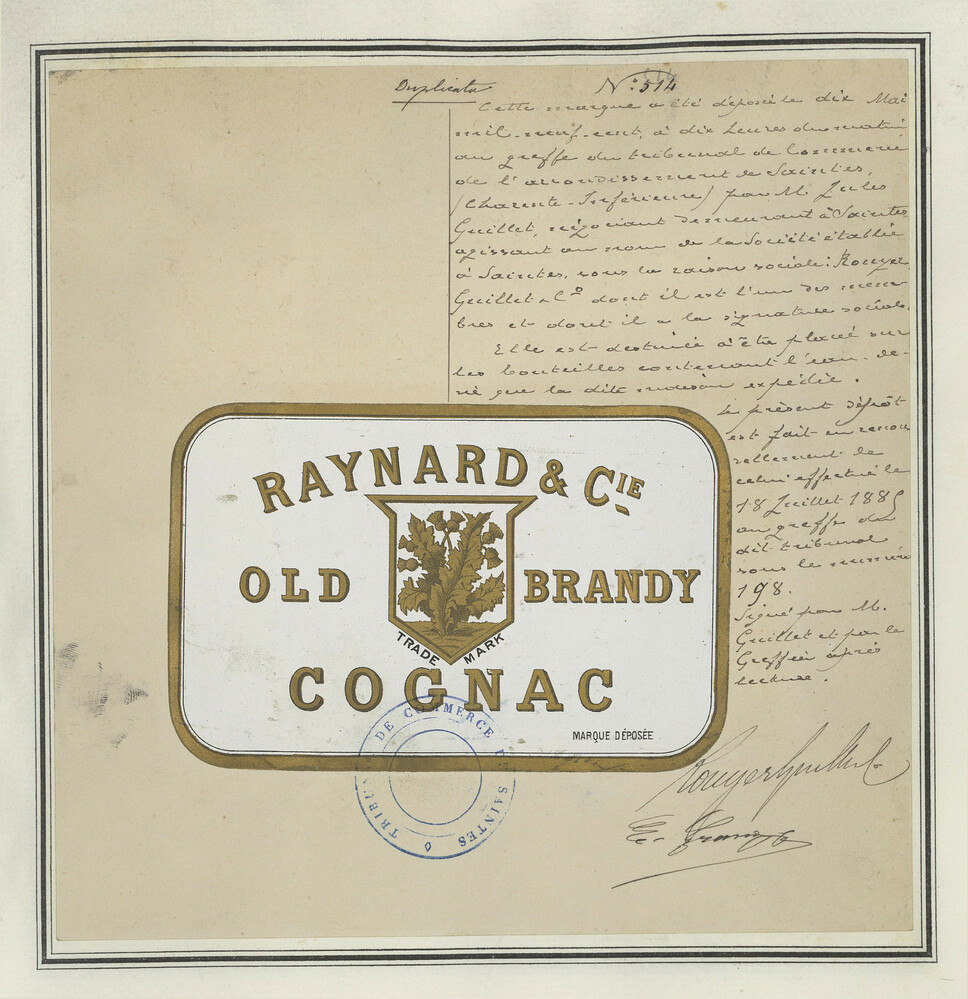 Duplicata
N° 514
Cette marque a été déposée le dix Mai
mil-neuf-cent, à dix heures du matin
au greffe du tribunal de Commerce
de l'arrondissement de Saintes,
(Charente-Inférieure) par M. Jules
Guillet, négociant demeurant à Saintes
agissant au nom de la Société établie
à Saintes, sous la raison sociale: Rouyer
Guillet & Cº dont il est l'un des mem
bres et dont il a la signature sociale.
Elle est destinée à être placée sur
les bouteilles contenant l'eau-de-
vie que la dite maison expédie.
Le présent dépôt
est fait en renou
vellement de
celui effectué le
18 Juillet 1885
au greffe du
dit tribunal
sous le numéro
198.
Signé par M.
Guillet et par le
Greffier après
lecture.
RAYNARD & CIE
OLD BRANDY
TRADE MARK
COGNAC
MARQUE DÉPOSÉE
TRIBUNAL DE COMMERCE DE SAINTES
Rouyer Guillet & C